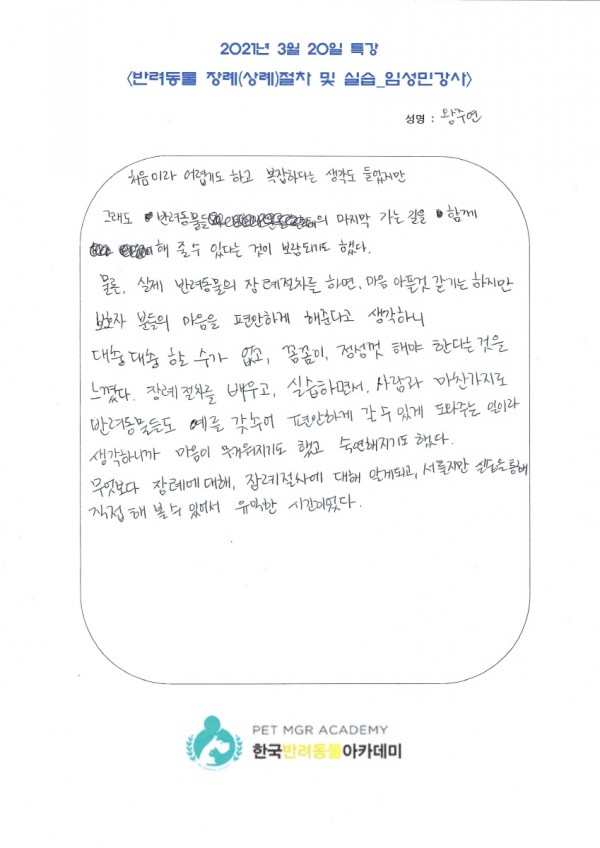 2021년 3월 20일 특강
<반려동물 장례(상례)절차 및 실습_임성민강사>
성명 : 왕주연
처음이라 어렵기도 하고 복잡하다는 생각도 들었지만
그래도 반려동물들의 마지막 가는 길을 함께
해 줄 수 있다는 것이 보람되기도 했다.
물론, 실제 반려동물의 장례절차를 하면, 마음 아플것 같기는 하지만
보호자 분들의 마음을 편안하게 해준다고 생각하니
대충대충 할 수가 없고, 꼼꼼이, 정성껏 해야 한다는 것을
느꼈다. 장례 절차를 배우고, 실습하면서, 사람과 마찬가지로
반려동물들도 예를 갖추어 편안하게 갈 수 있게 도와주는 일이라
생각하니까 마음이 무거워지기도 했고 숙연해지기도 했다.
무엇보다 장례에 대해, 장례절차에 대해 알게되고, 서툴지만 실습을 통해
직접 해 볼 수 있어서 유익한 시간이었다.
PET MGR ACADEMY
한국반려동물아카데미